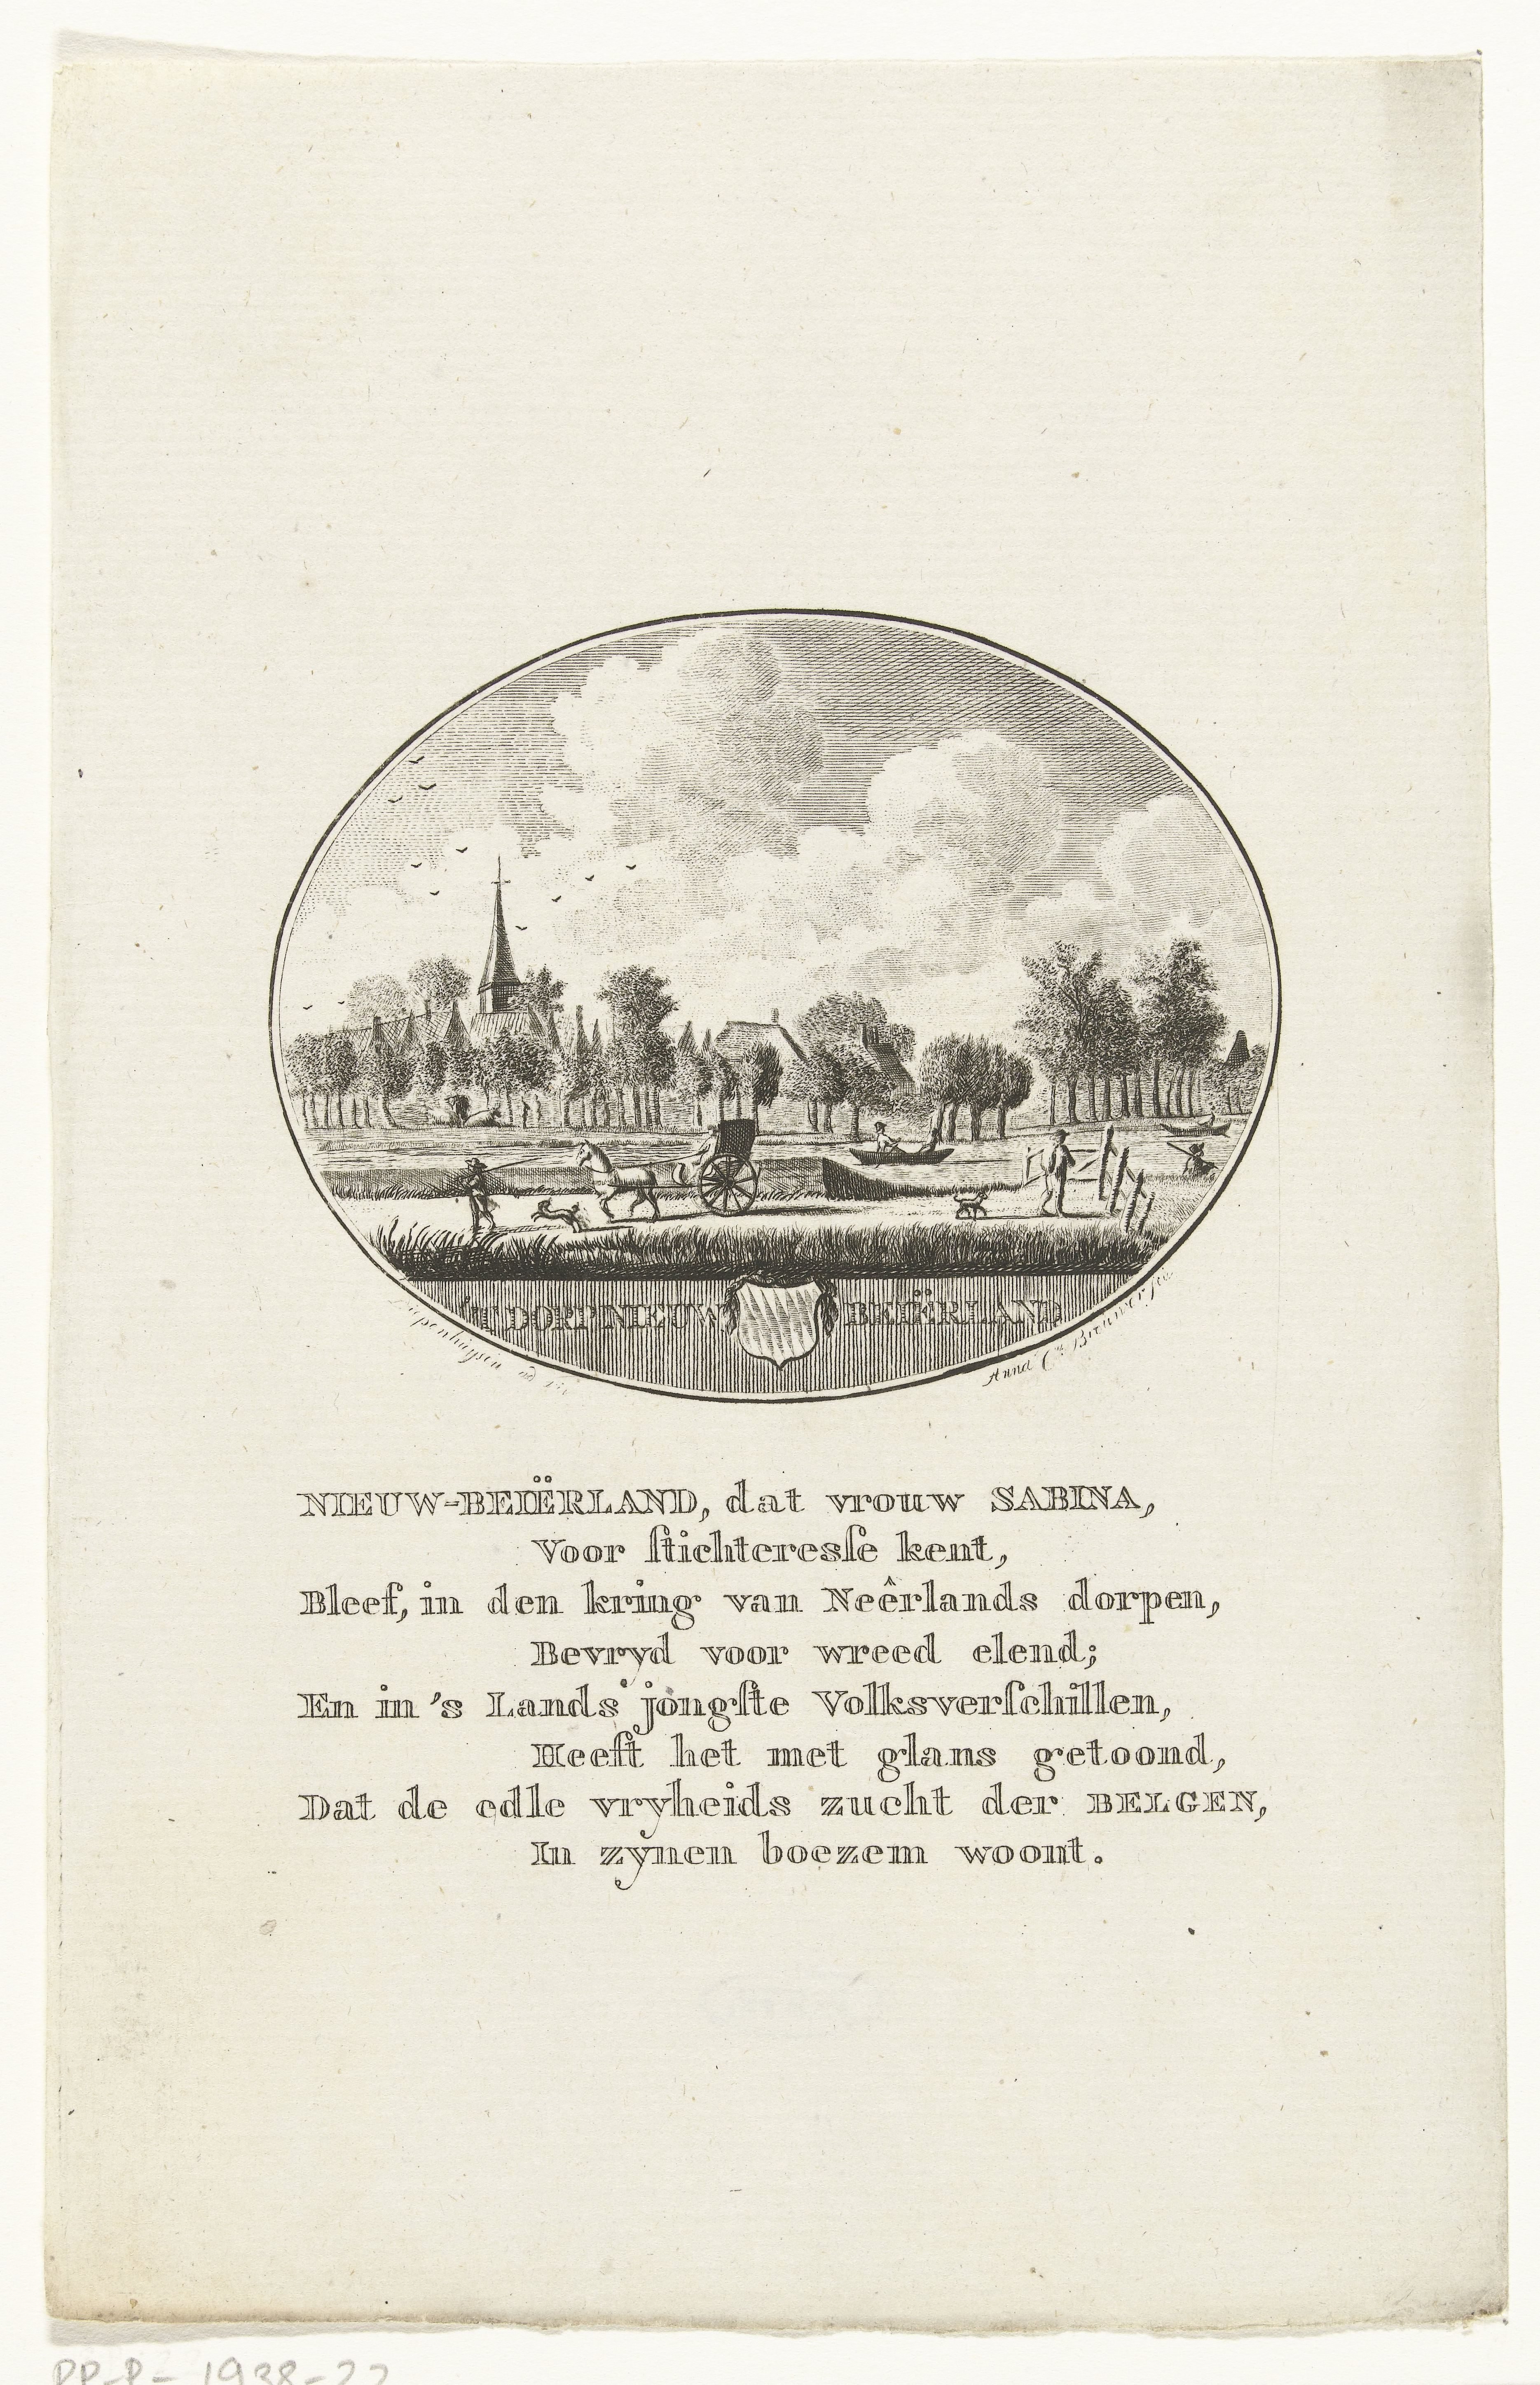 'T DORP NIEUW BEIËRLAND
Anna C. Brouwer
NIEUW-BEIËRLAND, dat vrouw SABINA,
Voor ſtichteresſe kent,
Bleef, in den kring van Neêrlands dorpen,
Bevryd voor wreed elend;
En in 's Lands jongſte Volksverſchillen,
Heeft het met glans getoond,
Dat de edle vryheids zucht der BELGEN,
In zynen boezem woont.
PP-P-1938-22